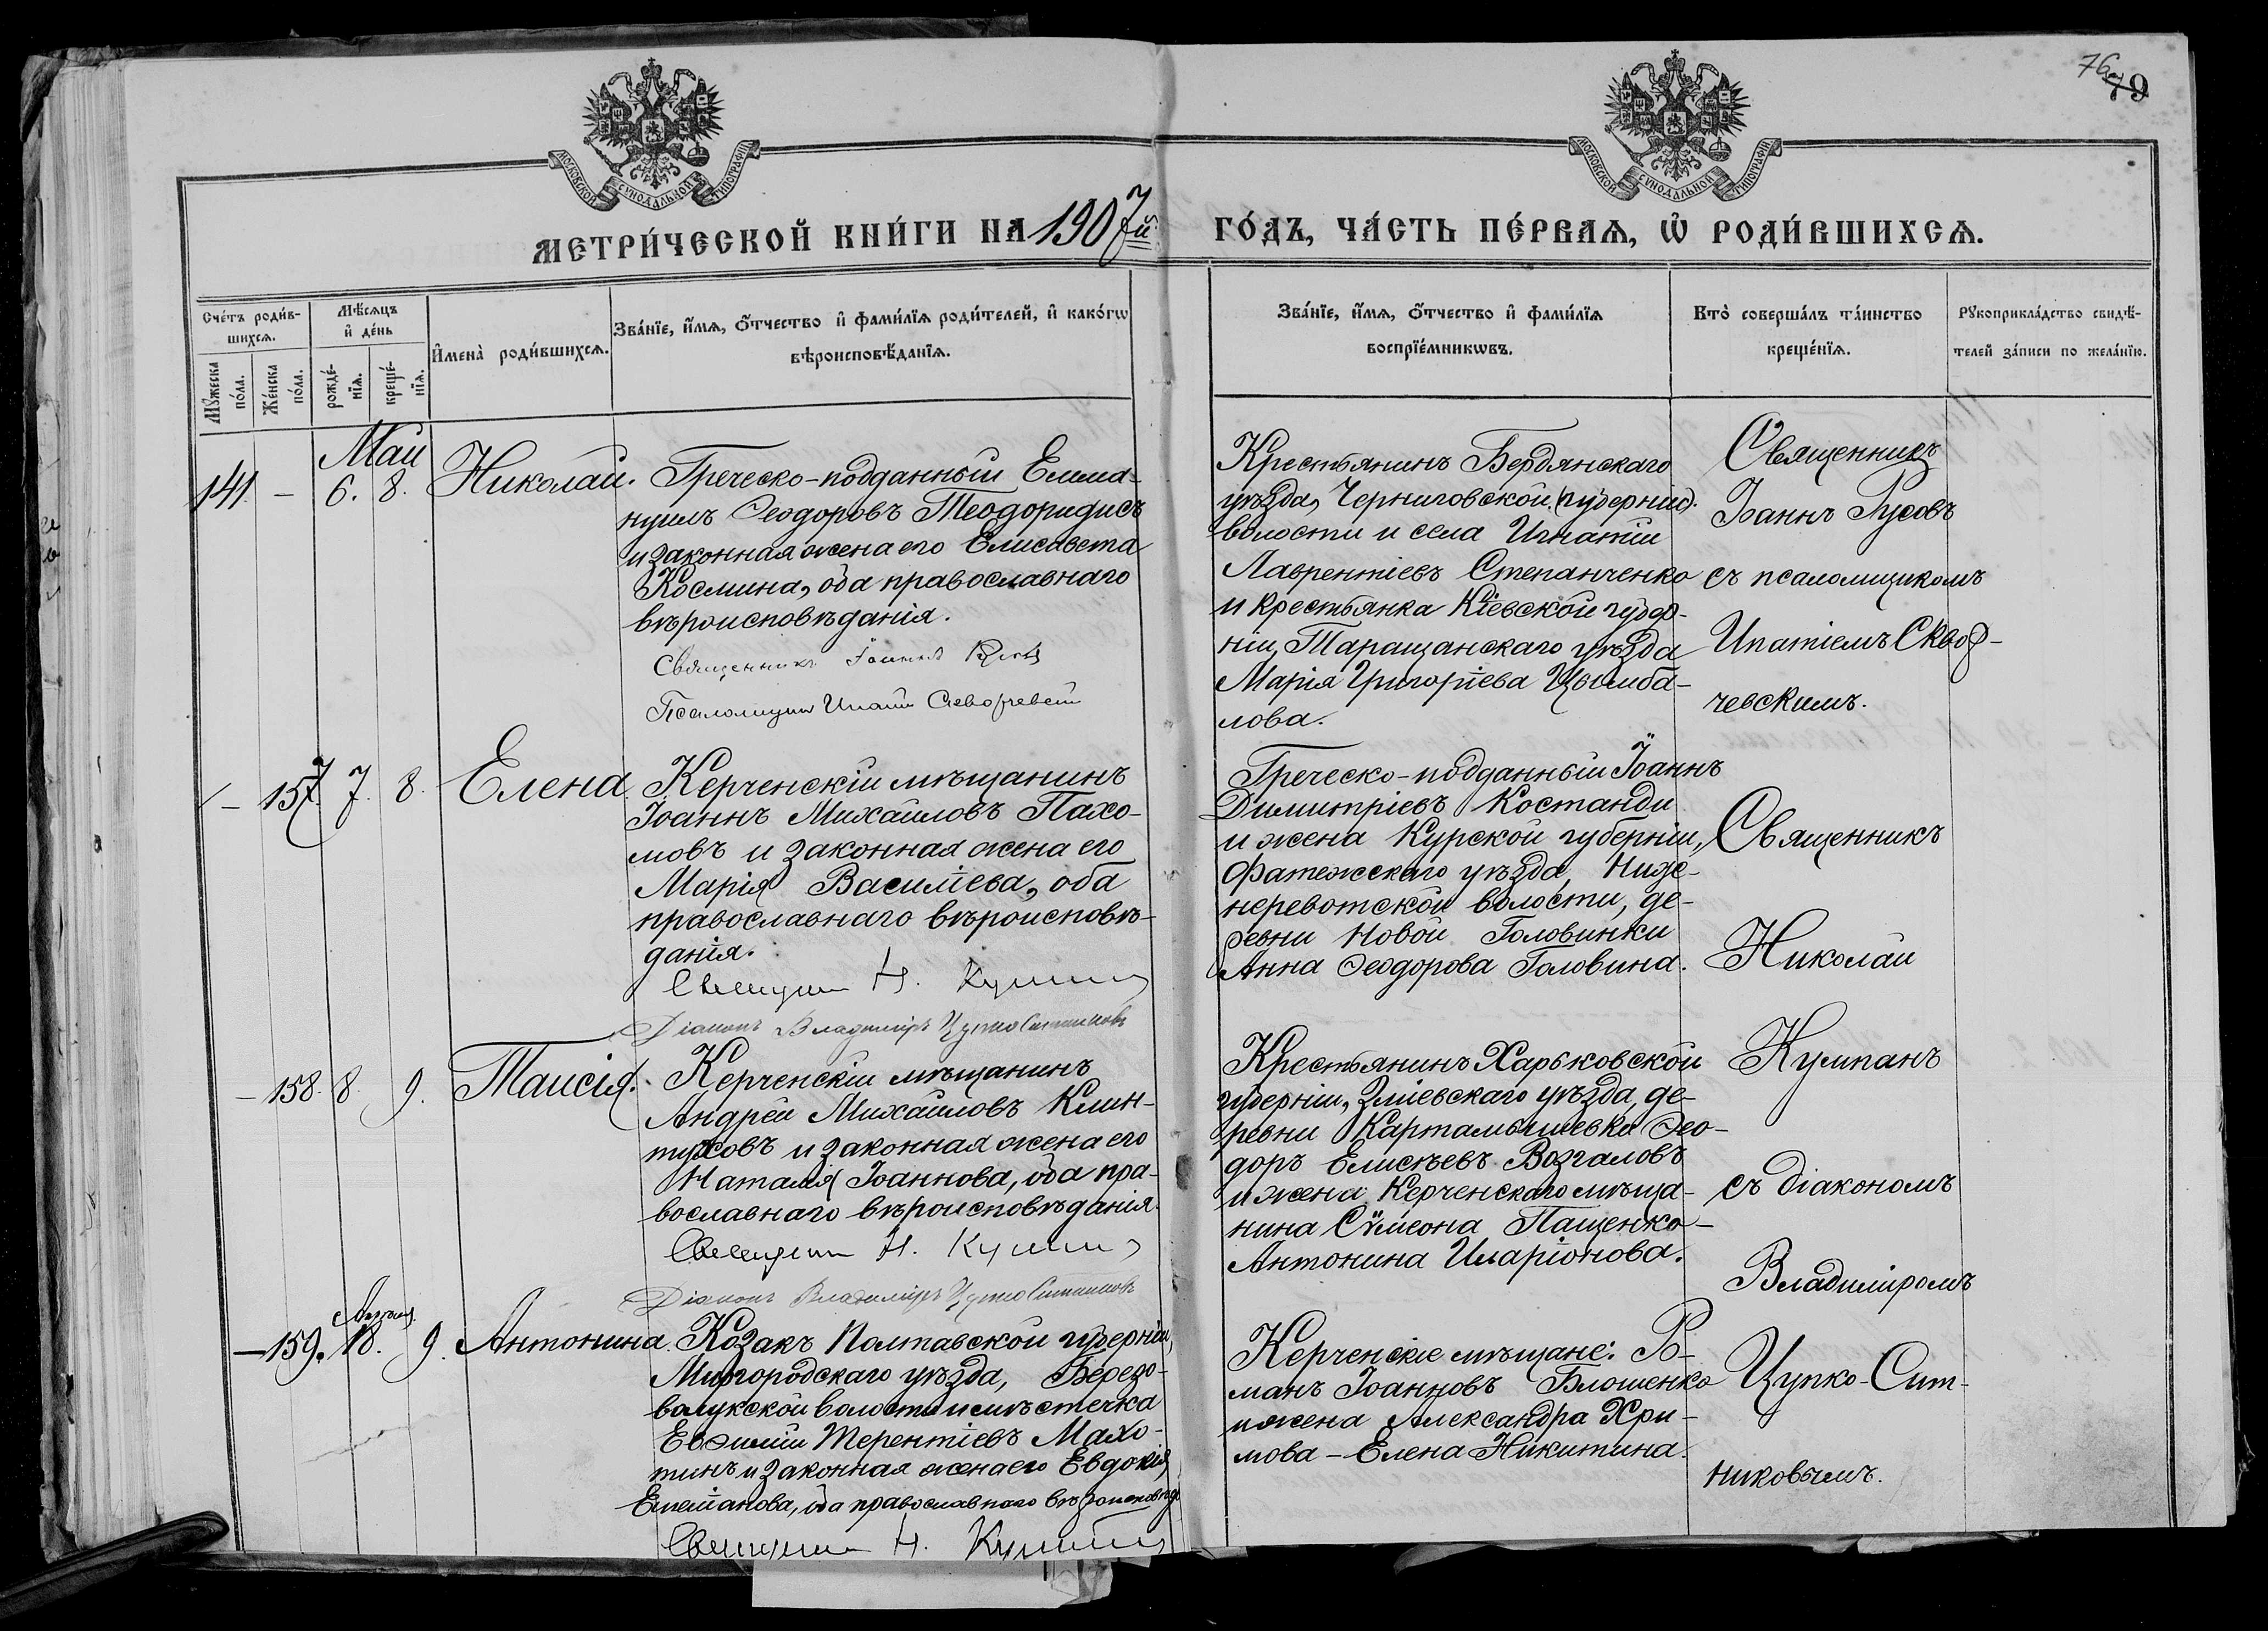 76 79
МОСКОВСКОЙ СѴНОДАЛЬНОЙ ТИПОГРАФІИ
МОСКОВСКОЙ СѴНОДАЛЬНОЙ ТИПОГРАФІИ
МЕТРИ́ЧЕСКОЙ КНИ́ГИ НА 1907й ГО́ДЪ, ЧА́СТЬ ПЕ́РВАѦ, Ѡ҆ РОДИ́ВШИХСѦ.
Сче́тъ роди́в-
шихсѧ.
Мꙋ́жеска
по́ла.
Же́нска
по́ла.
Мѣ́сѧцъ
и҆ де́нь
рожде́-
нїѧ.
креще́-
нїѧ.
И҆мена̀ роди́вшихсѧ.
Зва́нїе, и҆́мѧ, ѻ҆́тчество и҆ фами́лїѧ роди́телей, и҆ како́гѡ
вѣроисповѣ́данїѧ.
Зва́нїе, и҆́мѧ, ѻ҆́тчество и҆ фами́лїѧ
воспрїе́мникѡвъ.
Кто̀ соверша́лъ та́инство
креще́нїѧ.
Рꙋкоприкла́дство свидѣ́-
телей за́писи по жела́нїю.
Май
141. – 6. 8. Николай. Греческо-подданный Емма-
нуилъ Ѳеодоровъ Теодоридисъ
и законная жена его Елисавета
Космина, оба православнаго
вѣроисповѣданія.
Священникъ Іоаннъ Русовъ
Псаломщикъ Ипатій Скворчевскій
Крестьянинъ Бердянскаго
уѣзда, Черниговской (губерніи).
волости и села Игнатій
Лаврентіевъ Степанченко
и крестьянка Кіевской губер-
ніи, Таращанскаго уѣзда
Марія Григоріева Цымба-
лова.
Священникъ
Іоаннъ Русовъ
съ псаломщикомъ
Ипатіемъ Сквор-
чевскимъ.
– 157. 7. 8. Елена. Керченскій мѣщанинъ
Іоаннъ Михайловъ Пахо-
мовъ и законная жена его
Марія Василіева, оба
православнаго вѣроисповѣ-
данія.
Священникъ Н. Кумпанъ
Діаконъ Владиміръ Цупко Ситниковъ
Греческо-подданный Іоаннъ
Димитріевъ Костанди
и жена Курской губерніи,
Фатежскаго уѣзда, Ниже-
неревотской волости, де-
ревни Новой Головинки
Анна Ѳеодорова Головина.
Священникъ
Николай
Кумпанъ
съ діакономъ
Владиміромъ
Цупко-Сит-
никовымъ.
– 158. 8. 9. Таисія. Керченскій мѣщанинъ
Андрей Михайловъ Клин-
туховъ и законная жена его
Наталія Іоаннова, оба пра-
вославнаго вѣроисповѣданія.
Священникъ Н. Кумпанъ
Діаконъ Владиміръ Цупко Ситниковъ
Крестьянинъ Харьковской
губерніи, Зміевскаго уѣзда, де-
ревни Картамышевки Ѳео-
доръ Елисѣевъ Возгаловъ
и жена Керченскаго мѣща-
нина Сѵмеона Пащенко-
Антонина Иларіонова.
Апрѣля
– 159. 18. 9. Антонина. Козакъ Полтавской губерніи,
Миргородскаго уѣзда, Березо-
волукской волости и мѣстечка
Евѳимій Терентіевъ Махо-
тинъ и законная жена его Евдокія
Емеліанова, оба православнаго вѣроисповѣд
Священникъ Н. Кумпанъ
Керченскіе мѣщане: Ро-
манъ Іоанновъ Блошенко
и жена Александра Хри-
мова – Елена Никитина.